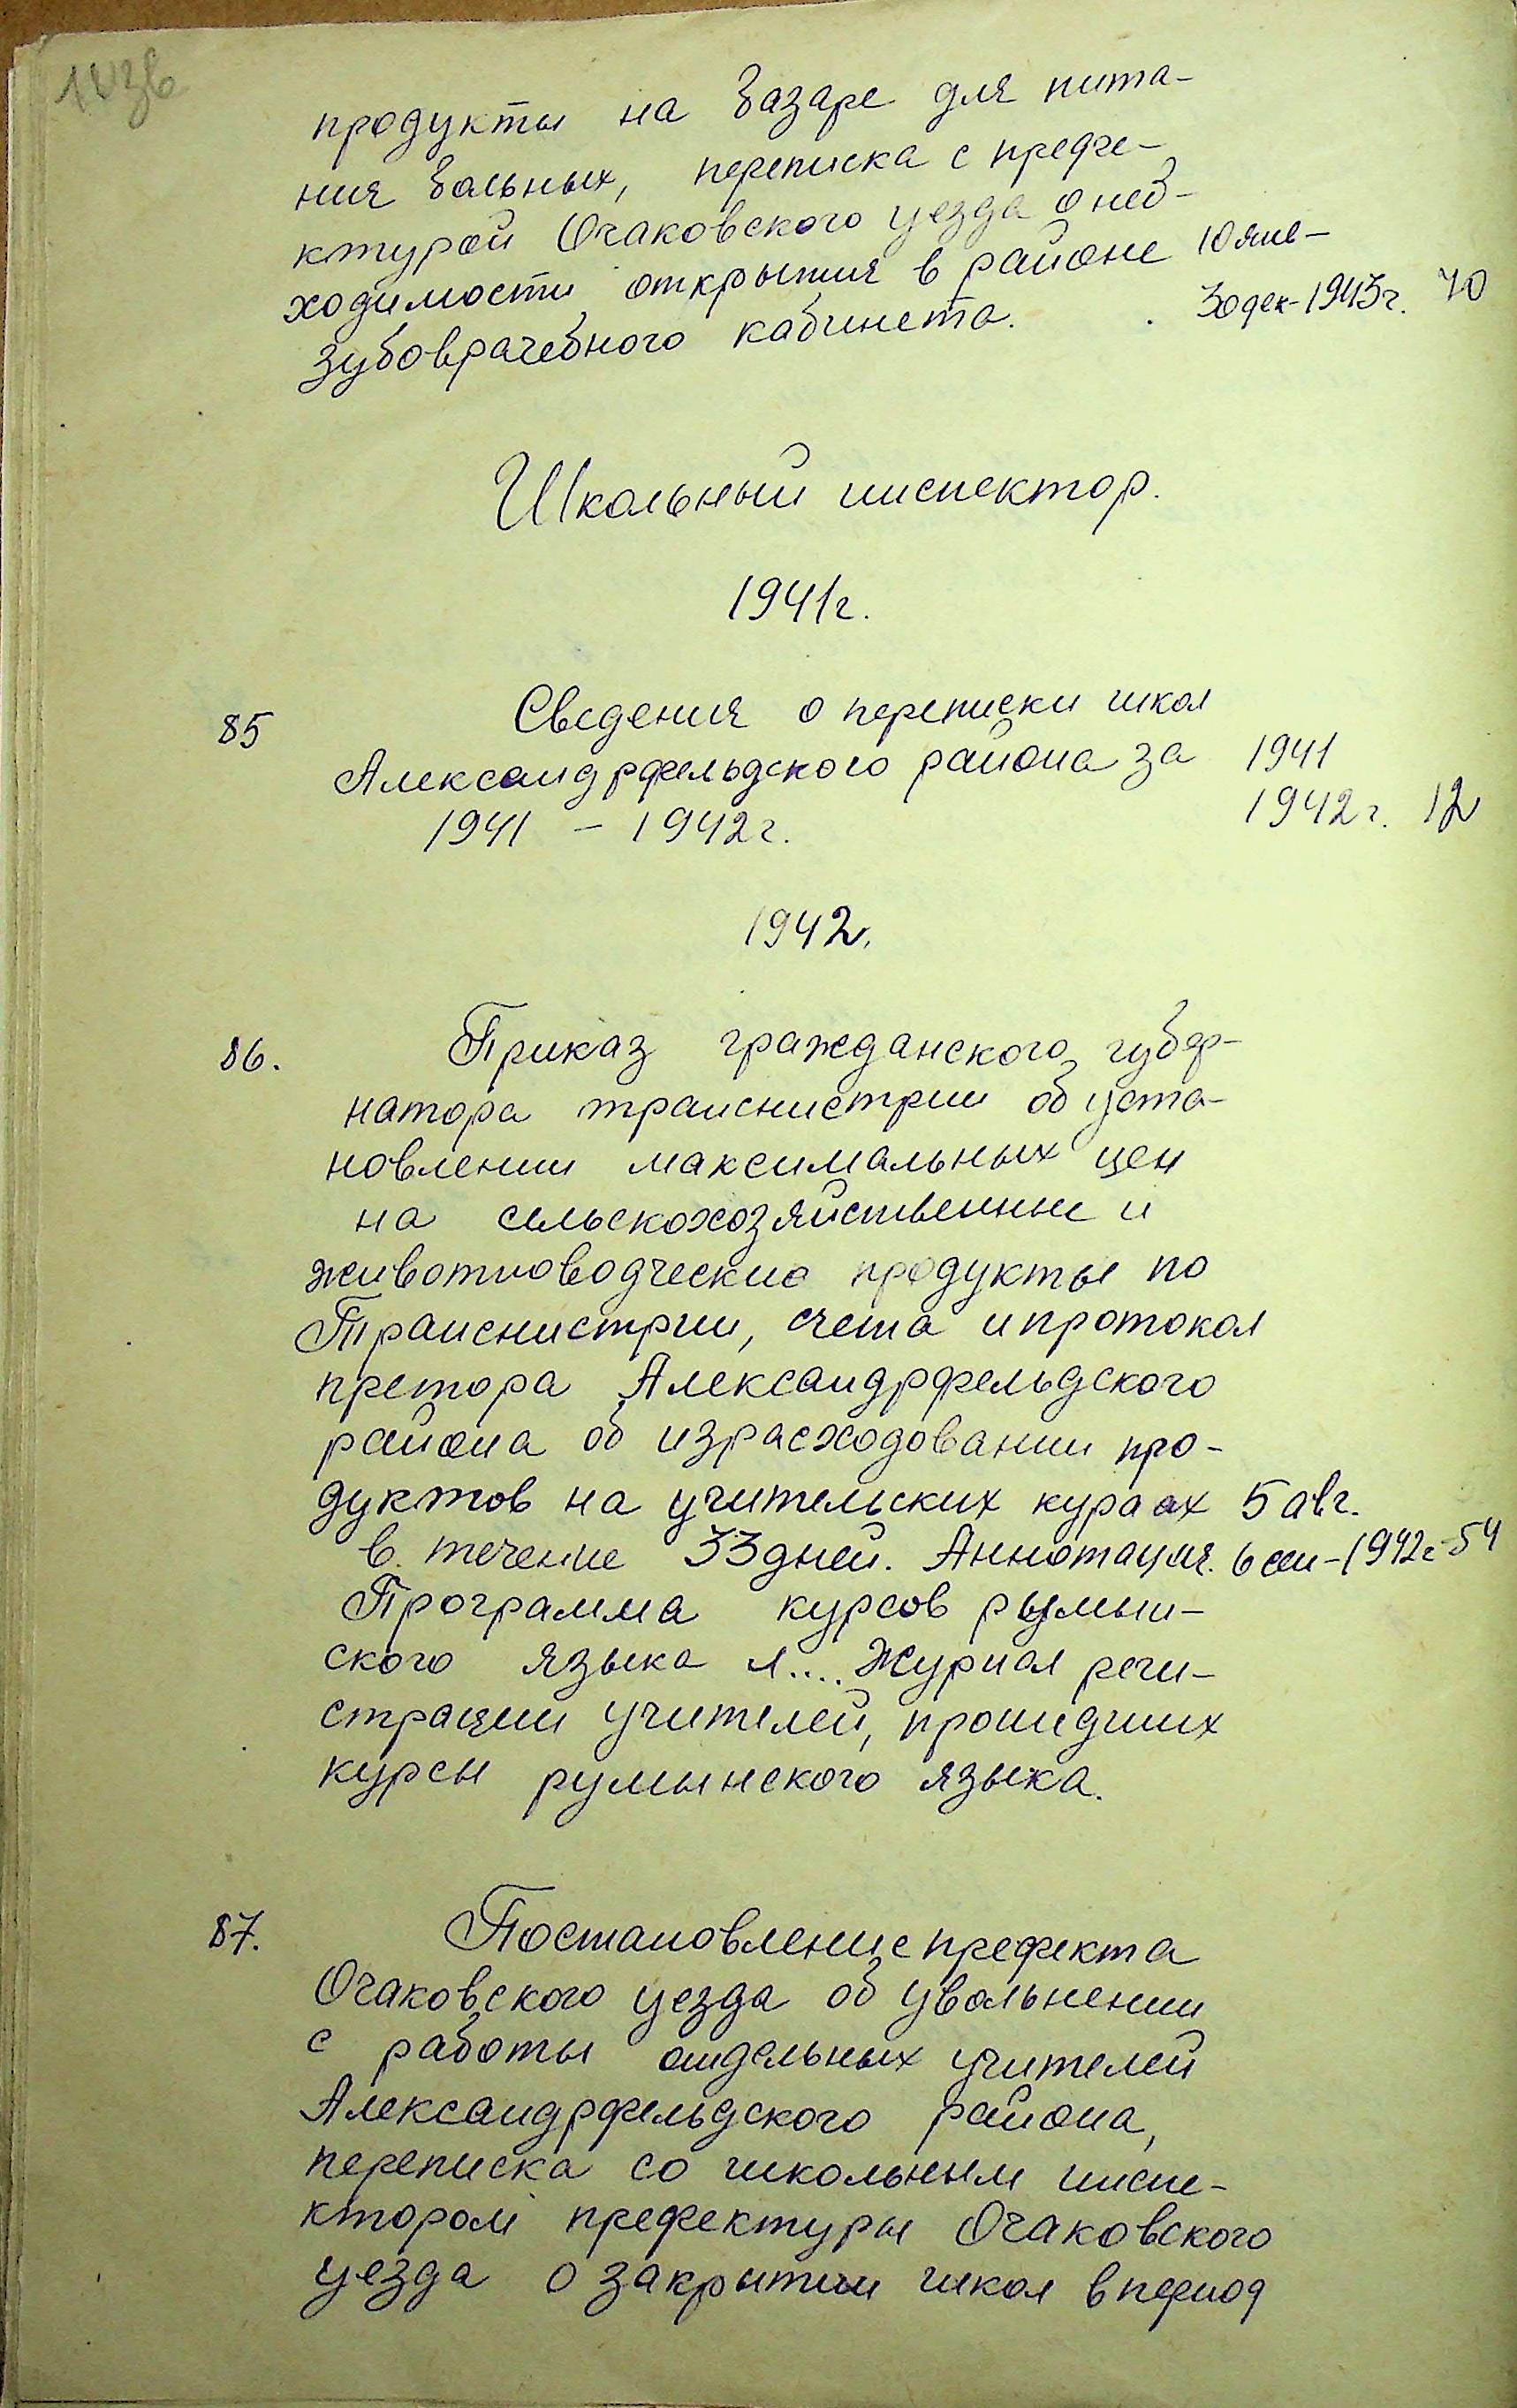 продукты на базаре для пита-
ния больных, переписка с префе-
ктурой Очаковского уезда о необ-
ходимости открытия в районе 10 янв-
зубоврачебного кабинета. 30 дек-1943г. 70
Школьный инспектор.
1941г.
85 Сведения о переписки школ
Александрфельдского района за 1941
1941 - 1942г. 1942г. 12
1942.
86. Приказ гражданского губер-
натора транснистрии об уста-
новлении максимальных цен
на сельскохозяйственные и
животноводческие продукты по
Транснистрии, счета и протокол
претора Александрфельдского
района об израсходовании про-
дуктов на учительских курсах 5 авг.
в течение 33 дней. Аннотация. 6 сен-1942г 54
Программа курсов румын-
ского языка и.... Журнал реги-
страции учителей, прошедших
курсы румынского языка.
87. Постановление префекта
Очаковского уезда об увольнении
с работы отдельных учителей
Александрфельдского района,
переписка со школьным инспе-
ктором префектуры Очаковского
уезда о закрытии школ в период